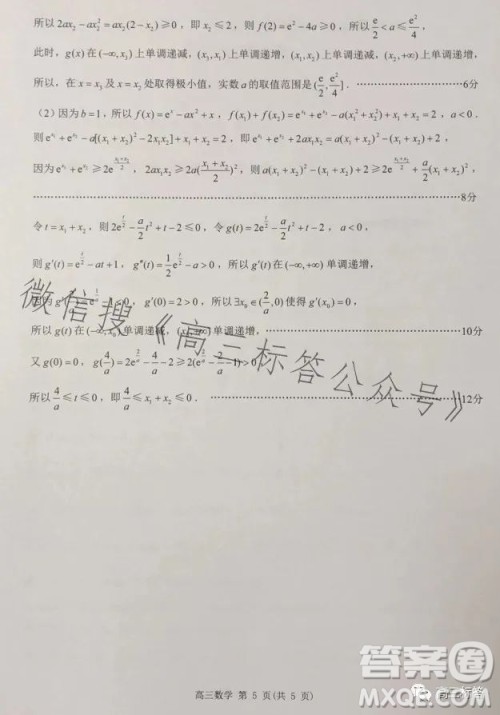 所以 2ax₂ − ax₂² = ax₂(2 − x₂) ≥ 0，即 x₂ ≤ 2，则 f(2) = e² − 4a ≥ 0，所以 e/2 < a ≤ e²/4，
此时，g(x) 在 (−∞, x₃) 上单调递减，(x₃, x₁) 上单调递增，(x₁, x₂) 上单调递减，(x₂, +∞) 上单调递增，
所以，在 x = x₃ 及 x = x₂ 处取得极小值，实数 a 的取值范围是 (e/2, e²/4]．6分
（2）因为 b = 1，所以 f(x) = eˣ − ax² + x，f(x₁) + f(x₂) = e^(x₁) + e^(x₂) − a(x₁² + x₂²) + x₁ + x₂ = 2，a < 0．
则 e^(x₁) + e^(x₂) − a[(x₁ + x₂)² − 2x₁x₂] + x₁ + x₂ = 2，即
因为 e^(x₁) + e^(x₂) ≥ 2e^((x₁+x₂)/2)，2ax₁x₂ ≥ 2a((x₁+x₂)/2)²，则 a(x₁ + x₂)² − (x₁ + x₂) + 2 ≥ 2e^((x₁+x₂)/2) + a/2(x₁ + x₂)²，
8分
令 t = x₁ + x₂，则 2e^(t/2) − a/2 t² + t − 2 ≤ 0，令 g(t) = 2e^(t/2) − a/2 t² + t − 2，
则 g′(t) = e^(t/2) − at + 1，g″(t) = 1/2 e^(t/2) − a > 0，所以 g′(t) 在 (−∞, +∞) 单调递增，
g′(0) = 2 > 0，所以 ∃x₀ ∈ (2/a, 0) 使得 g′(x₀) = 0，
所以 g(t) 在 (−∞, x₀) 单调递减，(x₀, +∞) 单调递增，10分
又 g(0) = 0，
所以 4/a ≤ t ≤ 0，即 4/a ≤ x₁ + x₂ ≤ 0．12分
微信搜《高三标答公众号》
高三数学 第 5 页(共 5 页)
答案圈
MXQE.COM